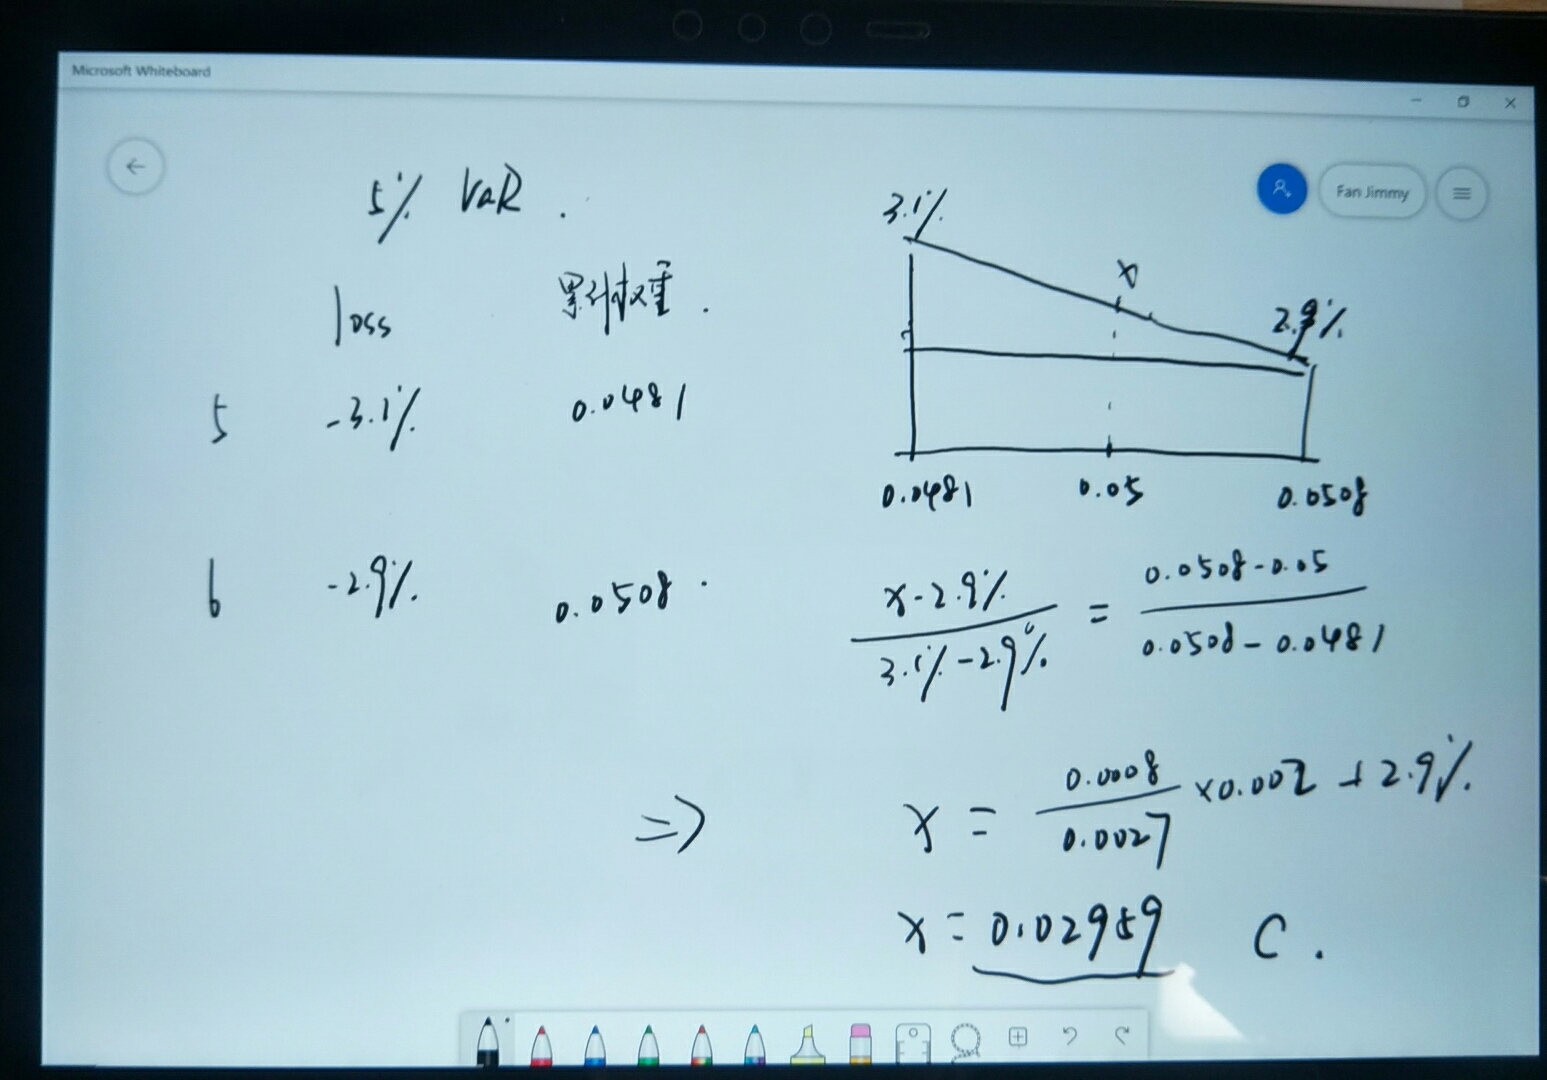 Microsoft Whiteboard
Fan Jimmy
5% VaR .
loss 累计权重 .
5 -3.1% 0.0481
6 -2.9% 0.0508 .
3.1%
x
2.9%
0.0481 0.05 0.0508
x-2.9% / 3.1%-2.9% = 0.0508-0.05 / 0.0508-0.0481
=> x = 0.0008 / 0.0027 ×0.002 +2.9%
x = 0.02959 C .